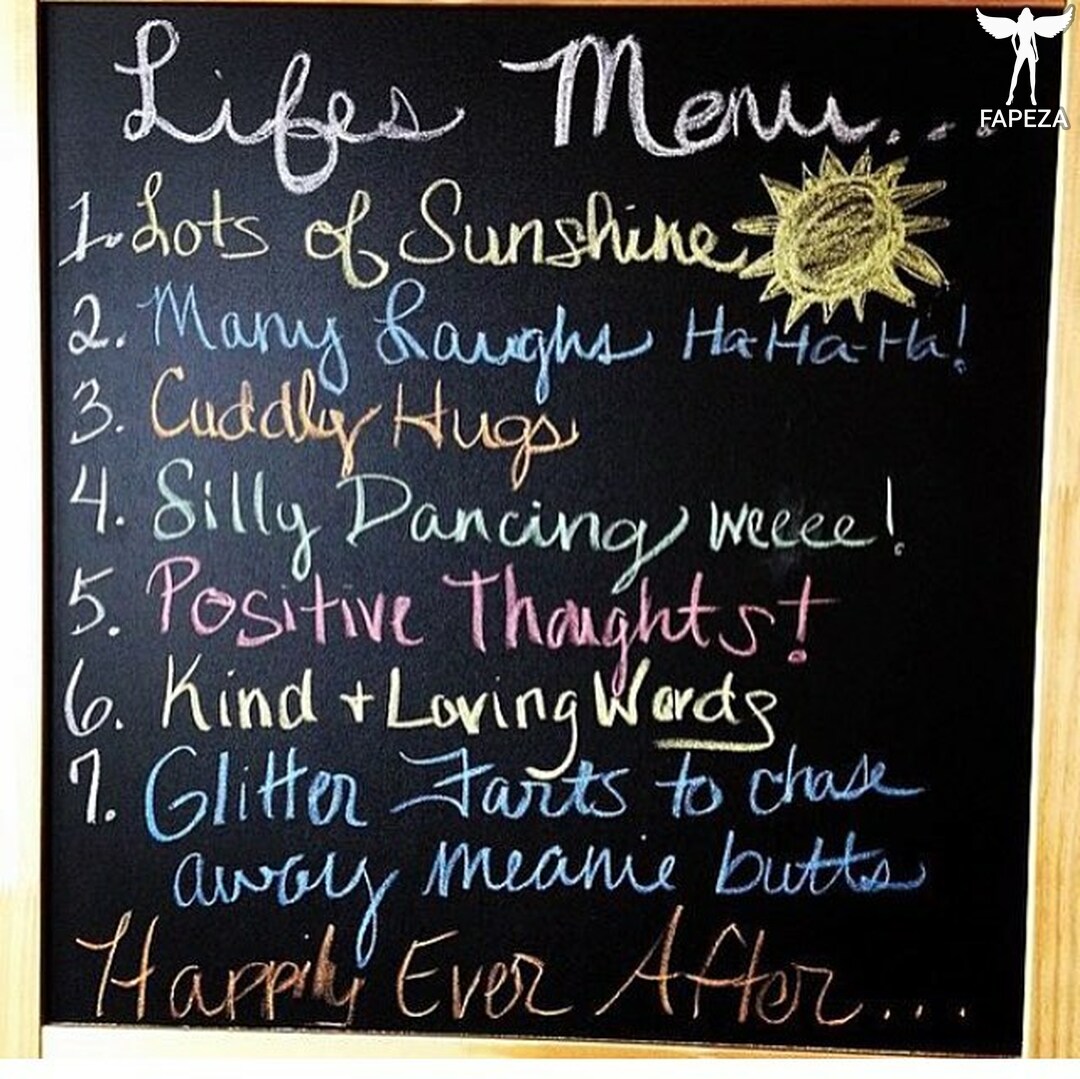 FAPEZA
Lifes Menu...
1. Lots of Sunshine
2. Many Laughs Ha-Ha-Ha!
3. Cuddly Hugs
4. Silly Dancing weeee!
5. Positive Thoughts!
6. Kind + Loving Words
7. Glitter Farts to chase
away meanie butts
Happily Ever After...